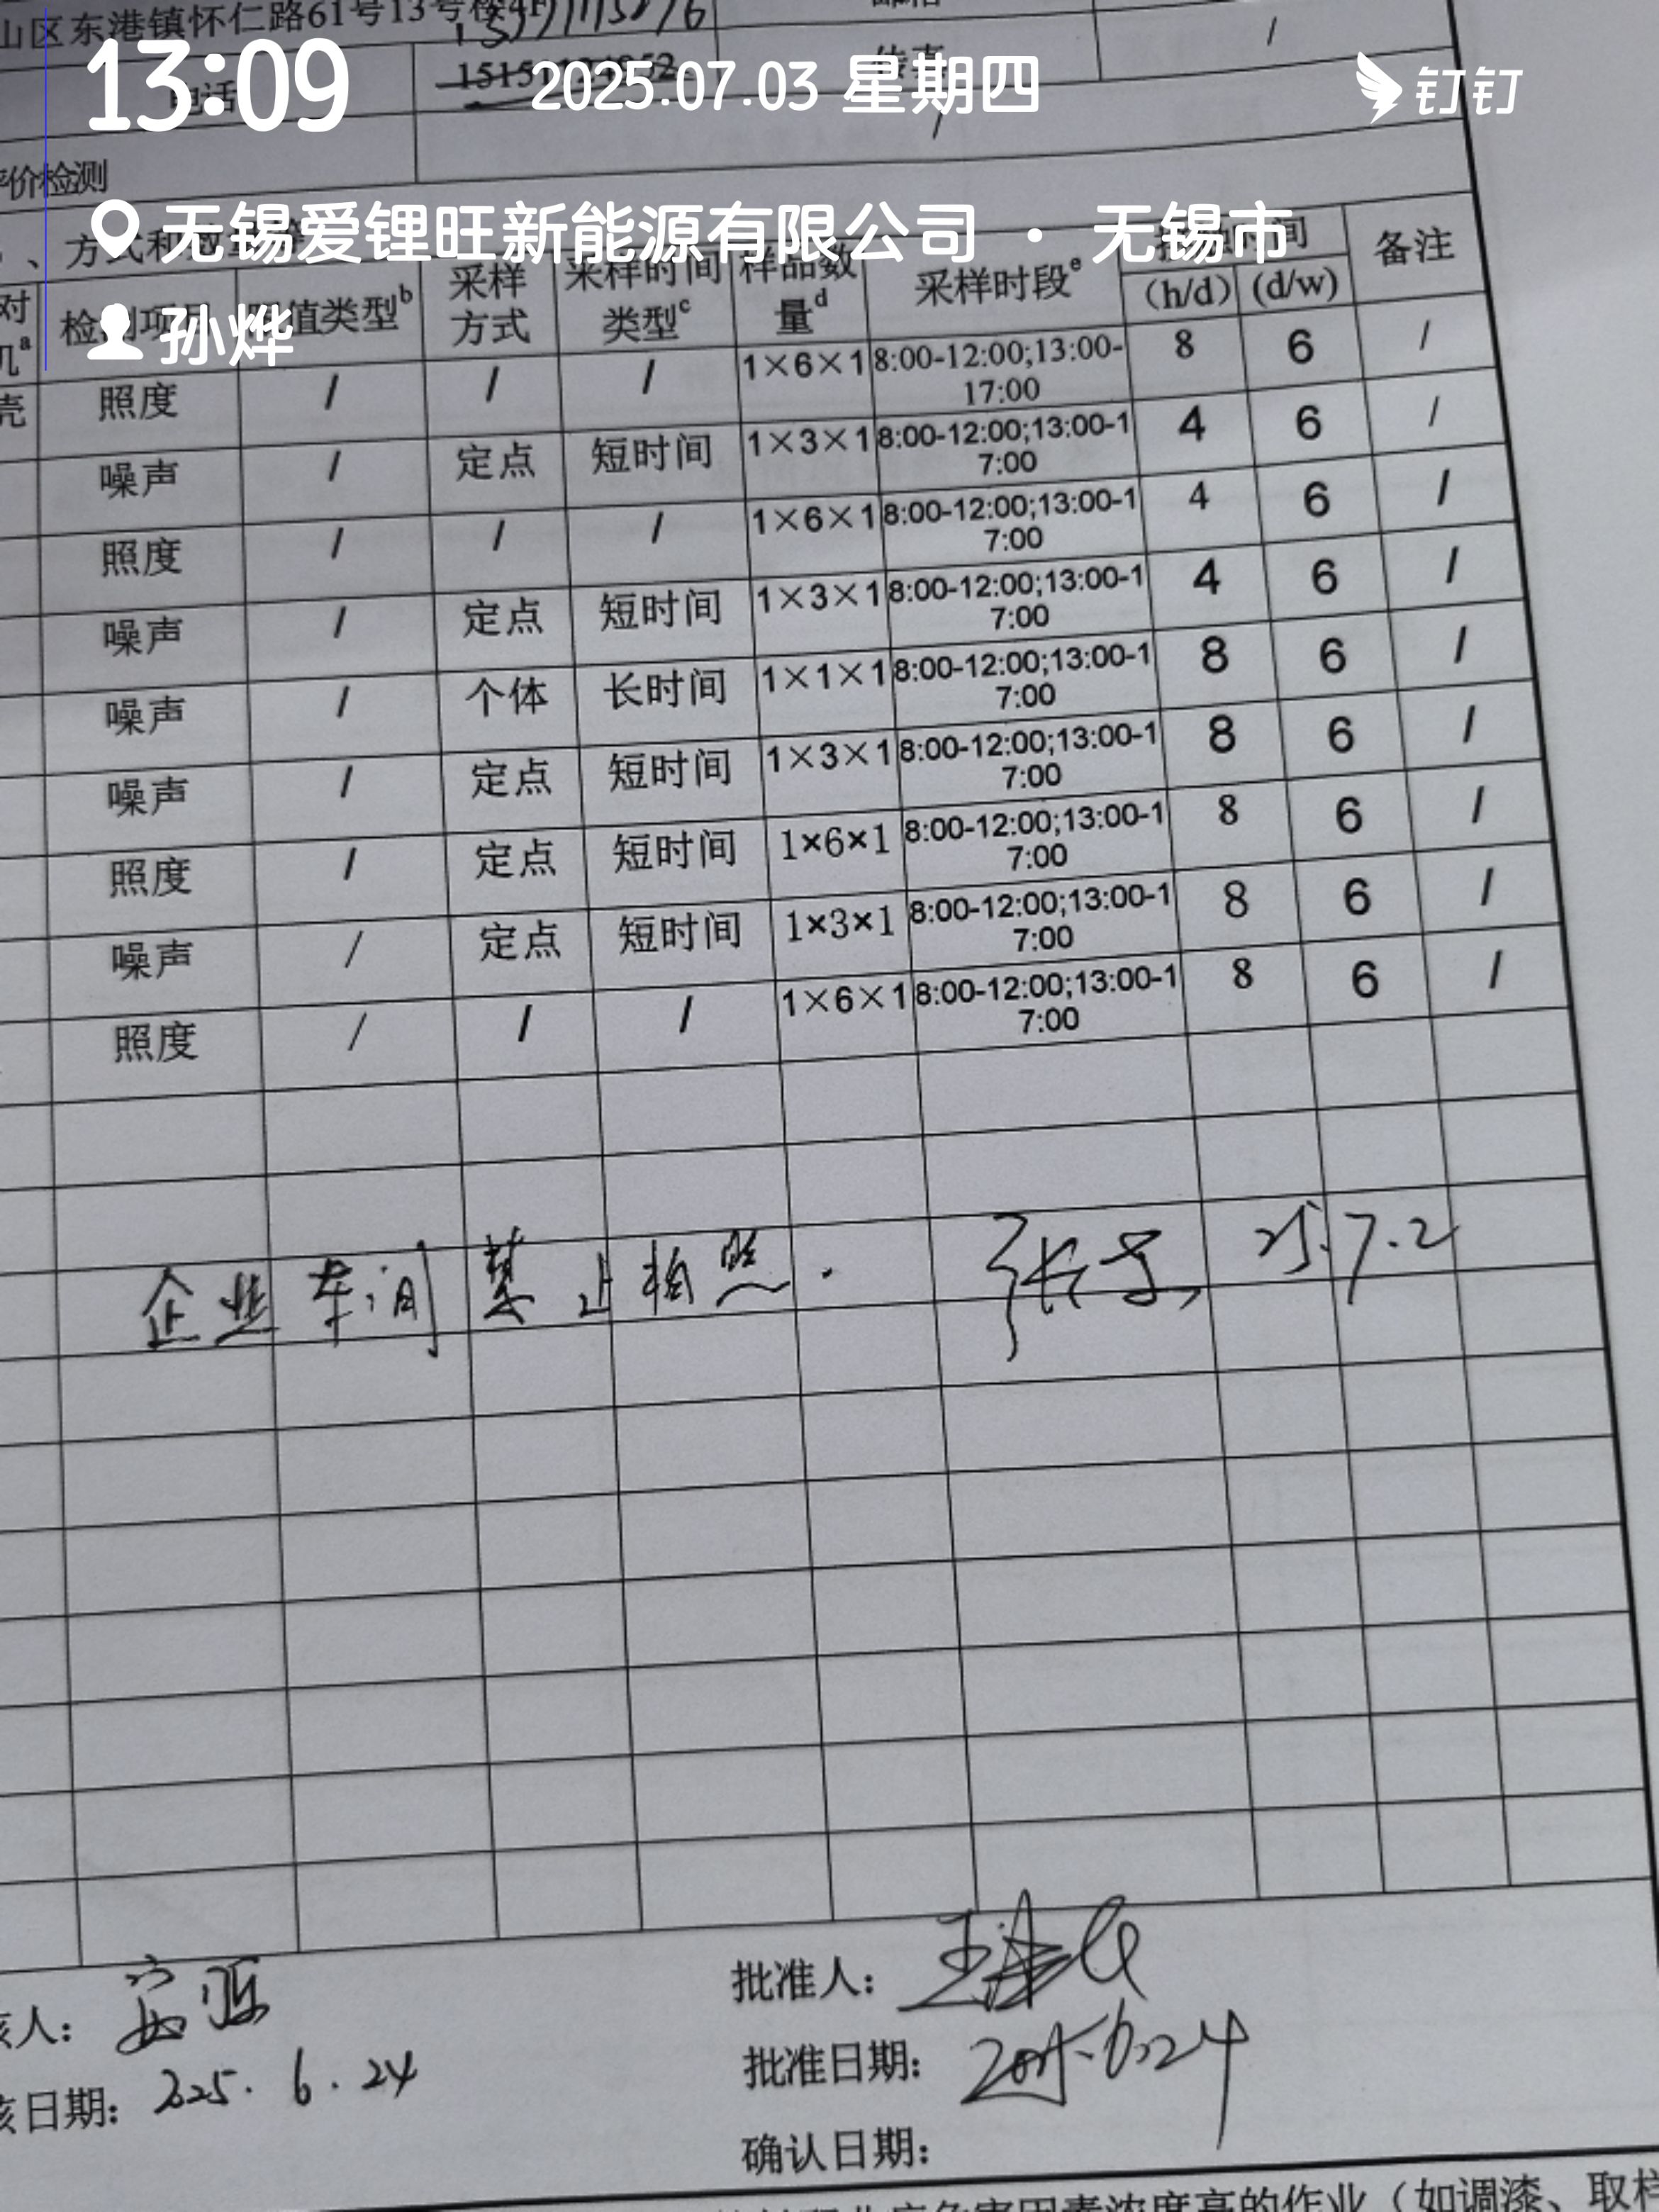 山区东港镇怀仁路61号13号楼4F
/
13:09
2025.07.03 星期四
钉钉
电话
传真
/
评价检测
无锡爱锂旺新能源有限公司 · 无锡市
孙烨
、方式和数量
检测项目 限值类型b 采样方式 采样时间类型c 样品数量d 采样时段e 接触时间 (h/d) (d/w) 备注
照度 / / / 1×6×1 8:00-12:00;13:00-17:00 8 6 /
噪声 / 定点 短时间 1×3×1 8:00-12:00;13:00-17:00 4 6 /
照度 / / / 1×6×1 8:00-12:00;13:00-17:00 4 6 /
噪声 / 定点 短时间 1×3×1 8:00-12:00;13:00-17:00 4 6 /
噪声 / 个体 长时间 1×1×1 8:00-12:00;13:00-17:00 8 6 /
噪声 / 定点 短时间 1×3×1 8:00-12:00;13:00-17:00 8 6 /
照度 / 定点 短时间 1×6×1 8:00-12:00;13:00-17:00 8 6 /
噪声 / 定点 短时间 1×3×1 8:00-12:00;13:00-17:00 8 6 /
照度 / / / 1×6×1 8:00-12:00;13:00-17:00 8 6 /
企业车间禁止拍照. 25.7.2
核人:
批准人:
核日期: 2025.6.24
批准日期: 2025.6.24
确认日期:
危害因素浓度高的作业（如调漆、取样